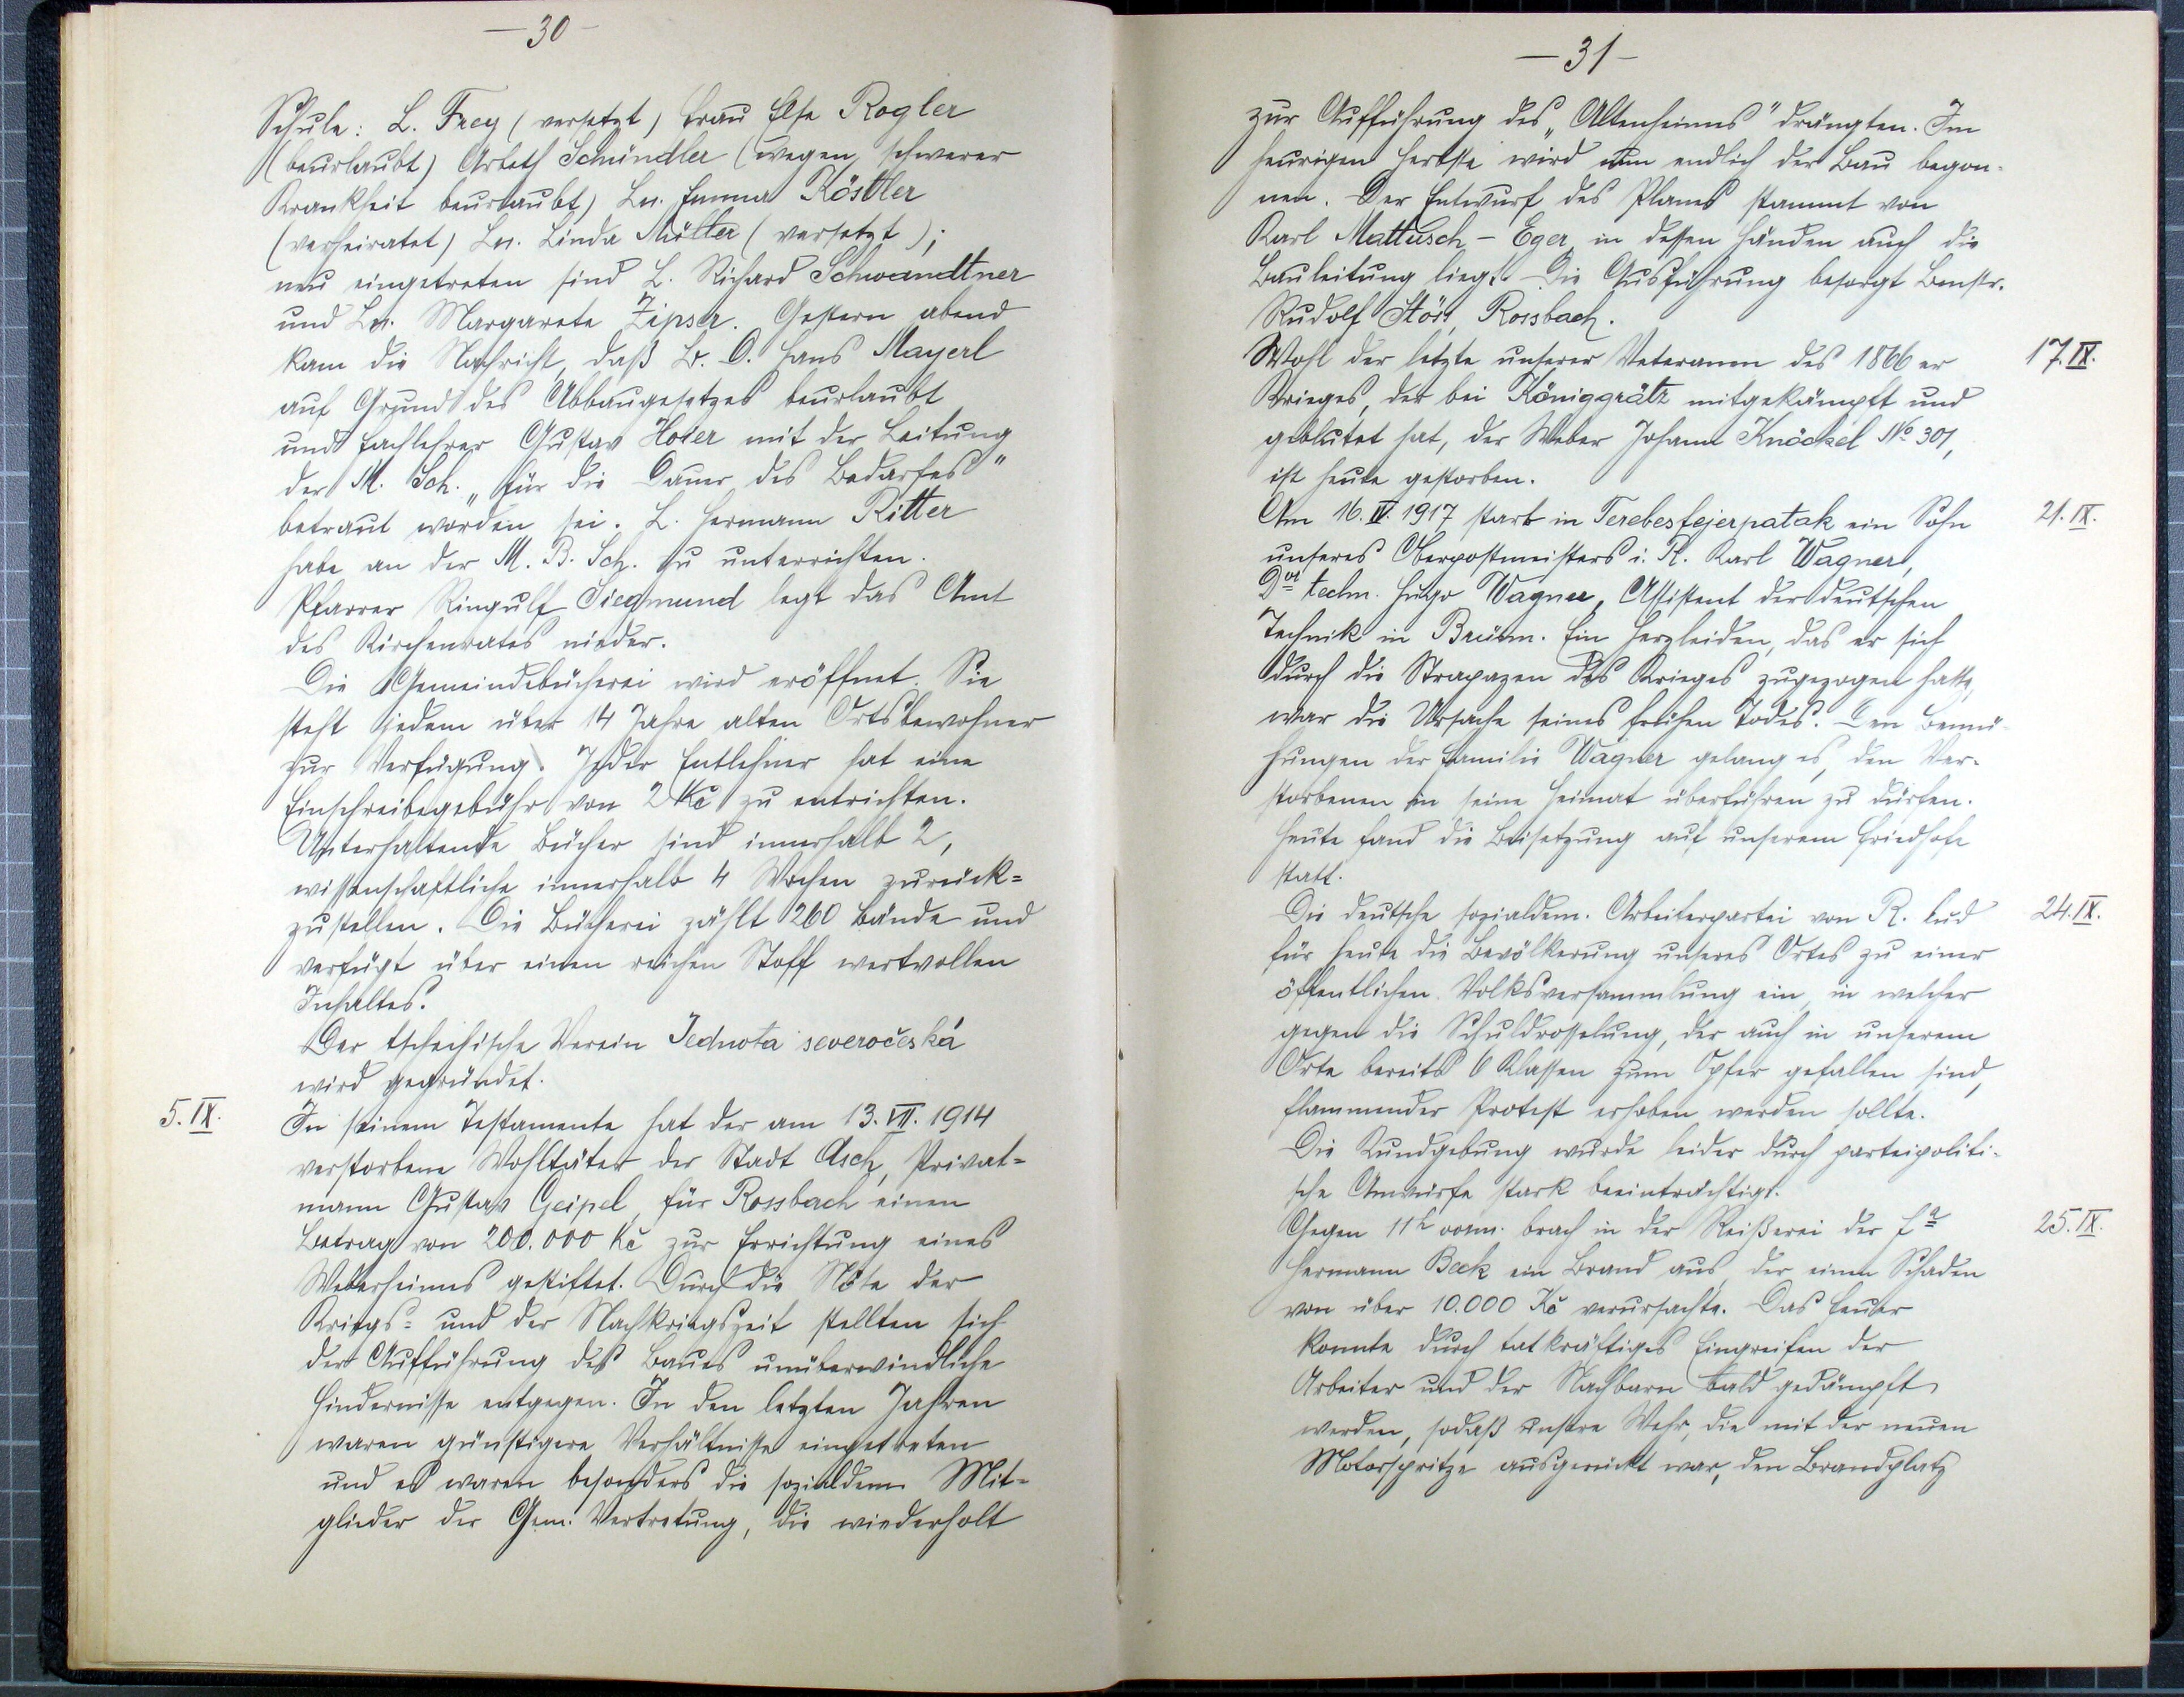 —30—
Schule: L. Frey (versetzt) Frau Else Rogler
(beurlaubt) Schündler (wegen schwerer
Krankheit beurlaubt) Ln. Emma Köstler
(verheiratet) Ln. Linda Müller (versetzt);
neu eingetreten sind L. Richard Schwandtner
und Ln. Margarete Zipser. Gestern abend
kam die Nachricht, daß B. D. Hans Mayerl
auf Grund des Abbaugesetzes beurlaubt
und Fachlehrer Gustav Hoier mit der Leitung
der M. Sch. „für die Dauer des Bedarfes"
betraut worden sei. L. Hermann Ritter
habe an der M. B. Sch. zu unterrichten.
Pfarrer Ringulf Siegmund legt das Amt
des Kirchenrates nieder.
Die Gemeindebücherei wird eröffnet. Sie
steht jedem über 14 Jahre alten Ortsbewohner
zur Verfügung. Jeder Entlehner hat eine
Einschreibegebühr von 2 Kč zu entrichten.
Unterhaltende Bücher sind innerhalb 2,
wissenschaftliche innerhalb 4 Wochen zurück=
zustellen. Die Bücherei zählt 260 Bände und
verfügt über einen reichen Stoff wertvollen
Inhaltes.
Der tschechische Verein Jednota severočeská
wird gegründet.
5. IX. In seinem Testamente hat der am 13. VII. 1914
verstorbene Wohltäter der Stadt Asch, Privat=
mann Gustav Geipel, für Rossbach einen
Betrag von 200.000 Kč zur Errichtung eines
Weberheimes gestiftet. Durch die Nöte der
Kriegs= und der Nachkriegszeit stellten sich
der Aufführung des Baues unüberwindliche
Hindernisse entgegen. In den letzten Jahren
waren günstigere Verhältnisse eingetreten
und es waren besonders die sozialdem. Mit=
glieder der Gem. Vertretung, die wiederholt
—31—
zur Aufführung des „Altenheimes" drängten. Im
heurigen Herbste wird nun endlich der Bau begon-
nen. Der Entwurf des Planes stammt von
Karl Mattusch - Eger, in dessen Händen auch die
Bauleitung liegt. Die Ausführung besorgt Bmstr.
Rudolf Stöss, Rossbach.
Wohl der letzte unserer Veteranen des 1866 er 17. IX.
Krieges, der bei Königgrätz mitgekämpft und
geblutet hat, der Weber Johann Knöckel No 301,
ist heute gestorben.
Am 16. IV. 1917 starb in Terebesfejerpatak ein Sohn 21. IX.
unseres Oberpostmeisters i. R. Karl Wagner,
Dor techn. Hugo Wagner, Assistent der deutschen
Technik in Brünn. Ein Herzleiden, das er sich
durch die Strapazen des Krieges zugezogen hatte,
war die Ursache seines frühen Todes. Den Bemü-
hungen der Familie Wagner gelang es, den Ver-
storbenen in seine Heimat überführen zu dürfen.
Heute fand die Beisetzung auf unserem Friedhofe
statt.
Die deutsche sozialdem. Arbeiterpartei von R. lud 24. IX.
für heute die Bevölkerung unseres Ortes zu einer
öffentlichen Volksversammlung ein, in welcher
gegen die Schuldrosselung, der auch in unserem
Orte bereits 6 Klassen zum Opfer gefallen sind,
flammender Protest erhoben werden sollte.
Die Kundgebung wurde leider durch parteipoliti-
sche Anwürfe stark beeinträchtigt.
Gegen 11h vorm. brach in der Reißerei der Fa 25. IX.
Hermann Beck ein Brand aus, der einen Schaden
von über 10.000 Kč verursachte. Das Feuer
konnte durch tatkräftiges Eingreifen der
Arbeiter und der Nachbarn bald gedämpft
werden, sodaß unsere Wehr, die mit der neuen
Motorspritze ausgerückt war, den Brandplatz